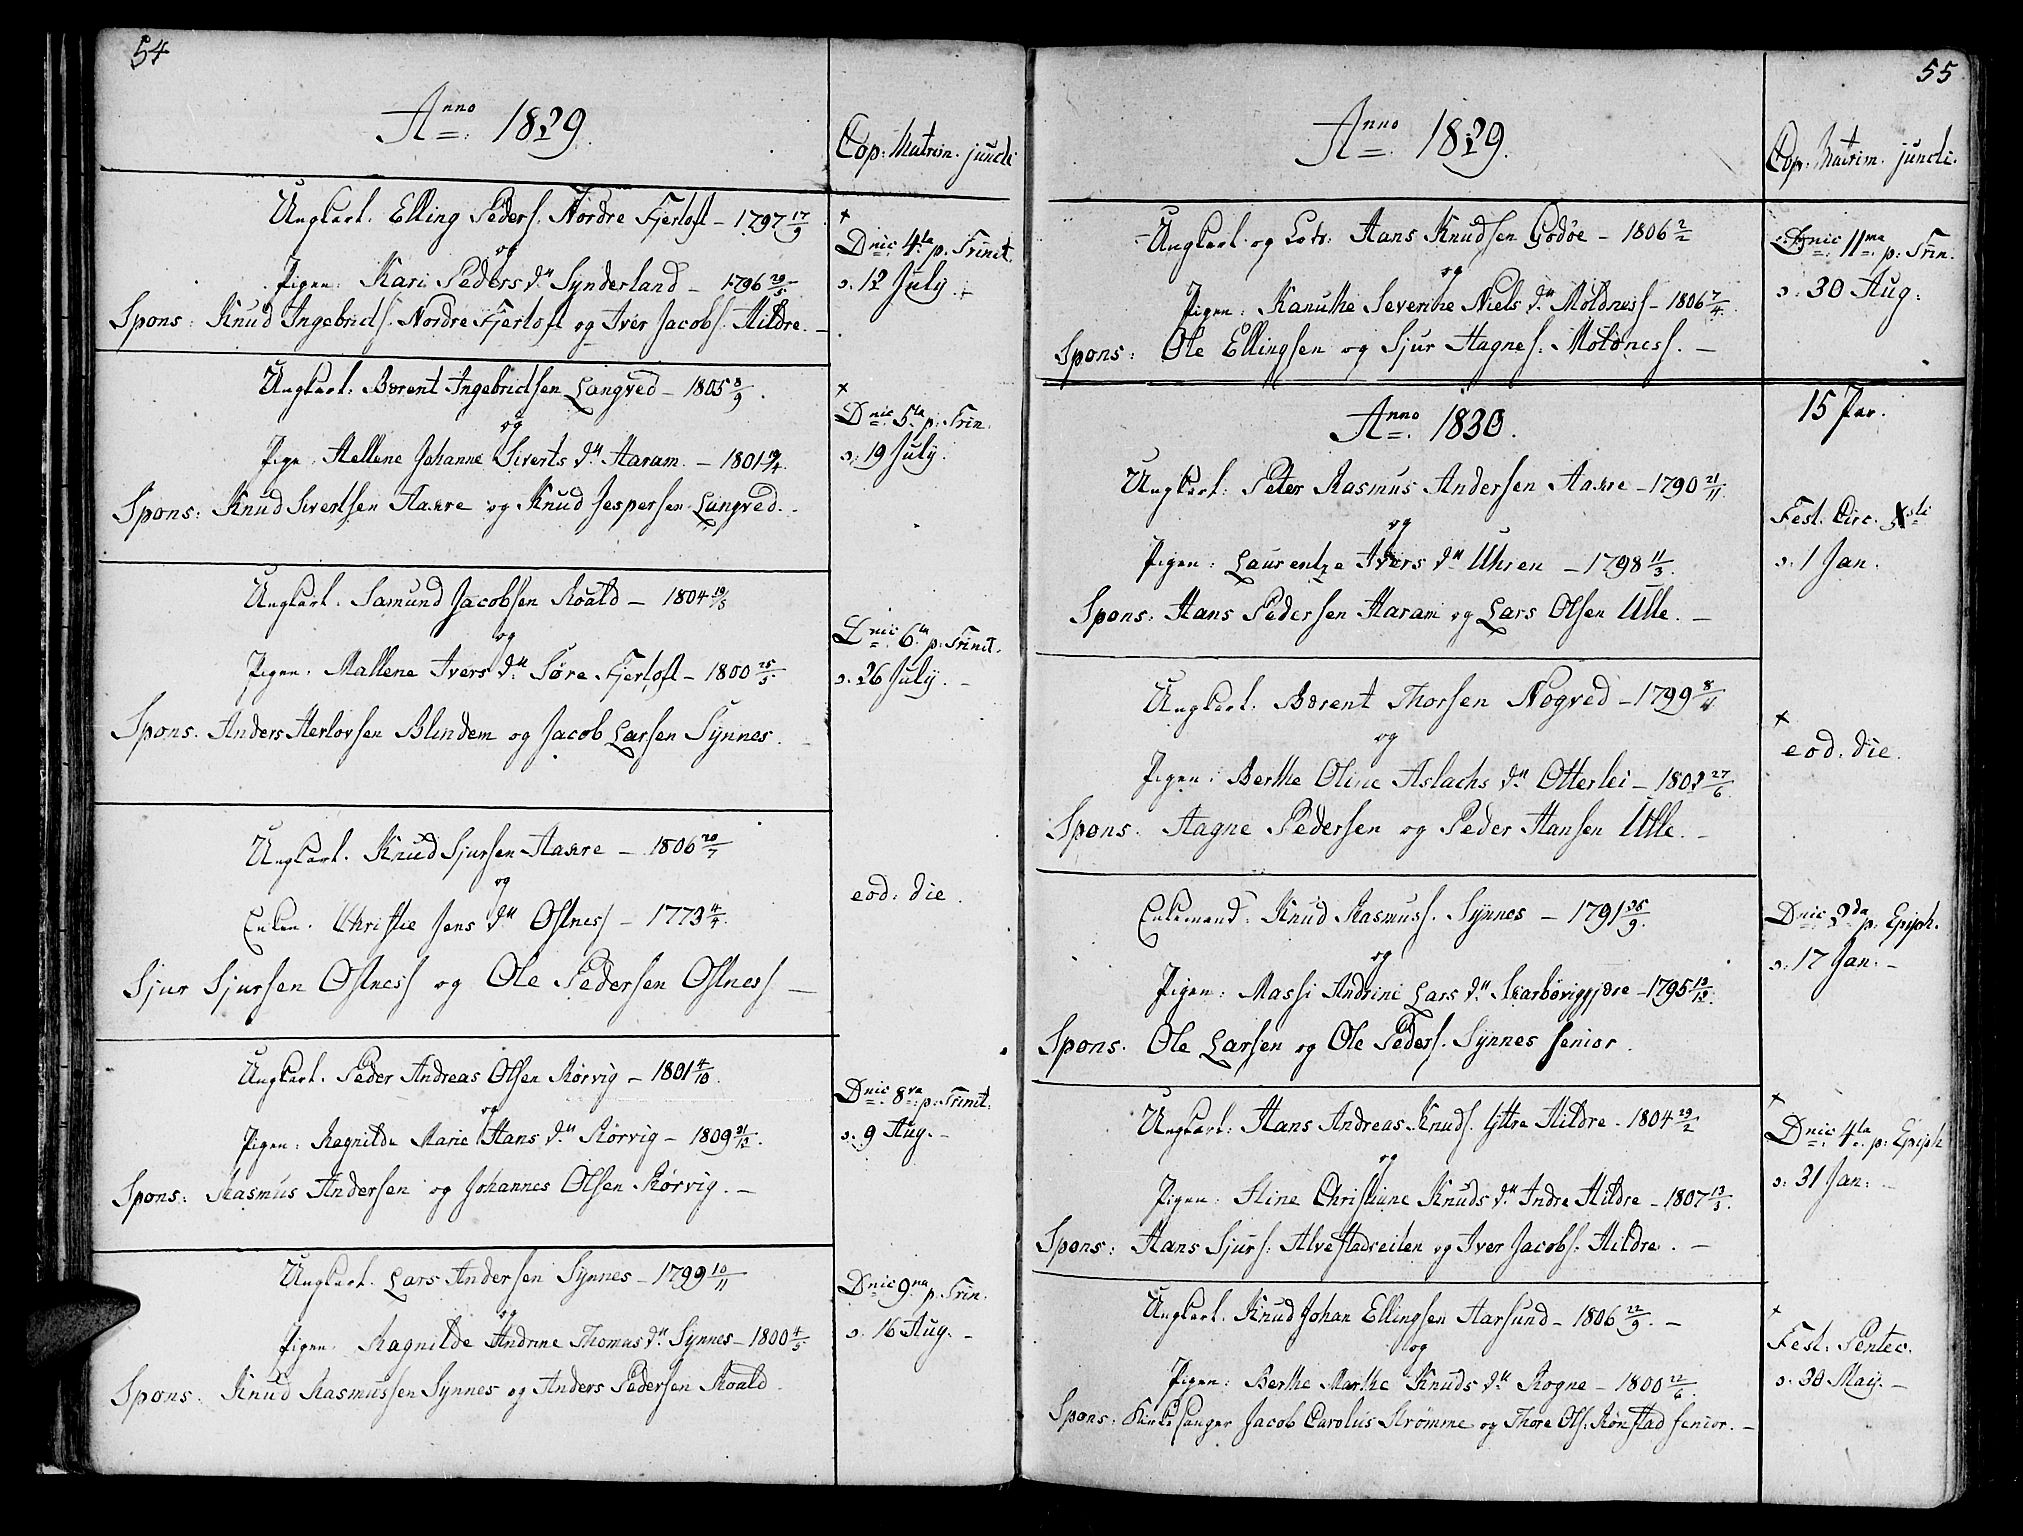 54
Anno 1829.
Cop: Matrim. juncti
Ungkarl. Elling Peders. Nordre Fjertoft – 1797 17/9
og
Pigen: Kari Peders dtr Synderland – 1796 29/5
Spons: Knud Ingebrictss. Nordre Fjertoft og Iver Jacobs. Hildre. –
+
Dnic. 4ta p. Trinit.
d. 12 July. –
Ungkarl. Bærent Ingebrictsen Langved – 1805 8/9.
og
Pige: Hellene Johanne Siverts dtr Haram. – 1801
Spons: Knud Sivertsen Aakre og Knud Jespersen Langved. –
+
Dnic. 5ta p: Trin.
d: 19 July.
Ungkarl. Samund Jacobsen Roald – 1804 19/5
og
Pigen: Mallene Ivers dtr Søre Fjertoft – 1800 25/5.
Spons. Anders Herlovsen Blindem og Jacob Larsen Synnes.
Dnic. 6ta p: Trinit.
d. 26 July. –
Ungkarl. Knud Sjursen Aakre – 1806 20/7
og
Enken. Christie Jens dtr Ostness – 1773 4/4.
Sjur Sjursen Ostness og Ole Pedersen Ostness –
eod: die.
Ungkarl. Peder Andreas Olsen Rørvig – 1801 4/10.
og
Pigen: Ragnilde Marie Hans dtr Rørvig – 1809 21/12.
Spons: Rasmus Andersen og Johannes Olsen Rørvig. –
Dnic. 8va p: Trinit.
d. 9 Aug. –
Ungkarl. Lars Andersen Synnes – 1799 10/11
og
Pigen. Ragnilde Andrine Thomas dtr Synnes – 1800 4/5
Spons. Knud Rasmussen Synnes og Anders Pedersen Roald.
Dnic. 9na p. Trin.
d. 16 Aug. –
55
Anno 1829.
Cop. Matrim. juncti.
Ungkarl og Lods: Hans Knudsen Godøe – 1806 2/2
og
Pigen: Kanutte Severine Niels dtr Moldness – 1806 7/4.
Spons: Ole Ellingsen og Sjur Hagnes: Moldness. –
Dnic 11ma p: Trin.
d. 30 Aug:
15 Par.
Anno 1830.
Ungkarl: Peter Rasmus Andersen Aakre – 1790 21/11.
og
Pigen: Laurentze Ivers dtr Uhren – 1798 11/3.
Spons: Hans Pedersen Haram og Lars Olsen Ulle. –
Fest. Circ. Xsti
d. 1 Jan.
Ungkarl. Bærent Thorsen Nogved – 1799
og
Pigen: Berthe Oline Aslachs dtr Otterlei – 1802 27/6.
Spons. Hagne Pedersen og Peder Hansen Ulle. –
+
eod. die.
Enkemand: Knud Rasmuss. Synnes – 1791 25/9.
og
Pigen: Massi Andrine Lars dtr Skarbøviggjære – 1795 13/12.
Spons. Ole Larsen og Ole Peders. Synnes senior.
Dnic. 2da p: Epiph.
d. 17 Jan. –
Ungkarl: Hans Andreas Knuds. Yttre Hildre – 1804 29/2
og
Pigen: Stine Christiane Knuds dtr Indre Hildre – 1807 13/3.
Spons: Hans Sjurs: Alvestadreiten og Iver Jacobs. Hildre. –
+
Dnic. 4ta p: Epiph
d. 31 Jan: –
Ungkarl. Knud Johan Ellingsen Aarsund – 1806 22/9. –
og
Pigen: Berthe Marthe Knuds dtr Rogne – 1800 22/6.
Spons: Kirkesanger Jacob Carolus Strømme og Thore Ols: Rønstad senior. –
+
Fest: Pentec.
d. 30 May. –